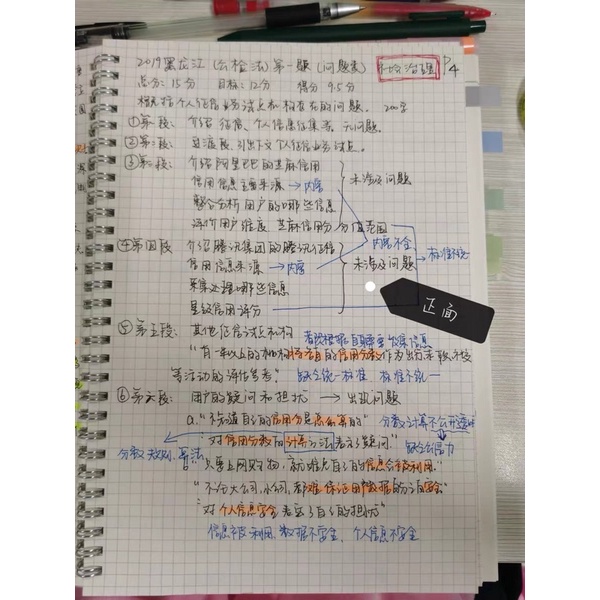 2019黑龙江（公检法）第一题（问题表）
社会治理
P4
总分：15分 目标：12分 得分 9.5分
概括个人征信业务试点机构存在的问题。 200字
①第一段： 介绍 征信、个人信息征集等。无问题。
②第二段： 过渡段，引出下文个人征信业务试点。
③第三段： 介绍阿里巴巴的芝麻信用
信用信息主要来源 → 内容
整合分析用户的哪些信息
未涉及问题
评价用户维度 芝麻信用分 分值范围
内容不全
④第四段 介绍腾讯集团的腾讯征信
信用信息来源 → 内容
未涉及问题
→ 标准不统一
哪些信息
星级信用评分
正面
⑤第五段： 其他征信试点机构
等活动的评估参考" 缺乏统一标准 标准不统一
⑥第六段： 用户的疑问和担忧 → 出现问题
a."不知道自己的信用分是怎么算的" 分数计算不公开透明
"对信用分数的计算方法存在了疑问"
缺乏公信力
分数规则、算法
"只要上网购物，就难免自己的信息会被利用"
"不分大公司、小公司，都难保证用户数据的的安全"
"对个人信息安全表示了自己的担忧"
信息被利用 数据不安全、个人信息不安全